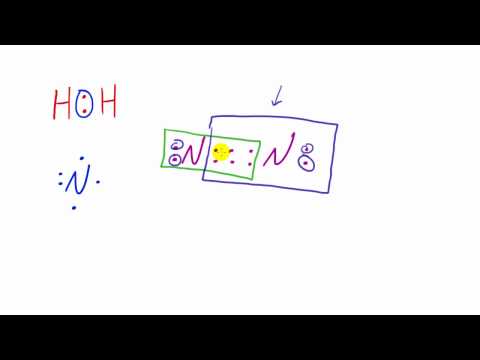 HOH
N N
N